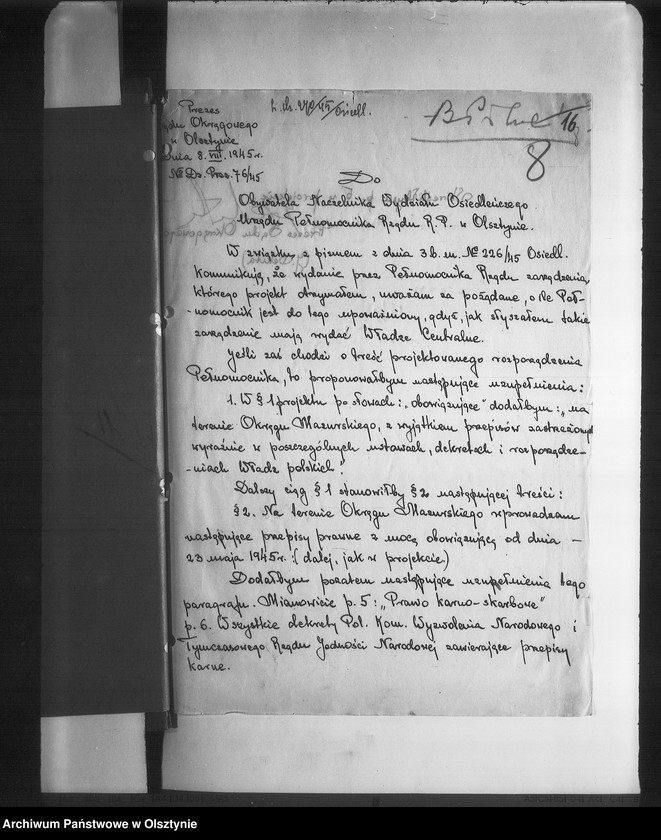 Prezes
Sądu Okręgowego
w Olsztynie
Dnia 8. VIII. 1945 r.
№ Dz. Prez. 76/45
L. dz. 270/45/Osiedl.
16
8
Do
Obywatela Naczelnika Wydziału Osiedleńczego
Urzędu Pełnomocnika Rządu R.P. w Olsztynie.
W związku z pismem z dnia 3 b.m. № 226/45 Osiedl.
komunikuję, że wydanie przez Pełnomocnika Rządu zarządzenia,
którego projekt otrzymałem, uważam za pożądane, o ile Peł-
-nomocnik jest do tego upoważniony, gdyż, jak słyszałem takie
zarządzenie mają wydać Władze Centralne.
Jeśli zaś chodzi o treść projektowanego rozporządzenia
Pełnomocnika, to proponowałbym następujące uzupełnienia:
1. W § 1 projektu po słowach: „obowiązujące" dodałbym: „na
terenie Okręgu Mazurskiego, z wyjątkiem przepisów zastrzeżonych
wyraźnie w poszczególnych ustawach, dekretach i rozporządze-
-niach Władz polskich".
Dalszy ciąg § 1 stanowiłby § 2 następującej treści:
§ 2. Na terenie Okręgu Mazurskiego wprowadzam
następujące przepisy prawne z mocą obowiązującą od dnia -
23 maja 1945 r: (dalej, jak w projekcie)
Dodałbym pozatem następujące uzupełnienia tego
paragrafu. Mianowicie p. 5: „Prawo karno-skarbowe"
p. 6. Wszystkie dekrety Pol. Kom. Wyzwolenia Narodowego i
Tymczasowego Rządu Jedności Narodowej zawierające przepisy
karne.
Archiwum Państwowe w Olsztynie